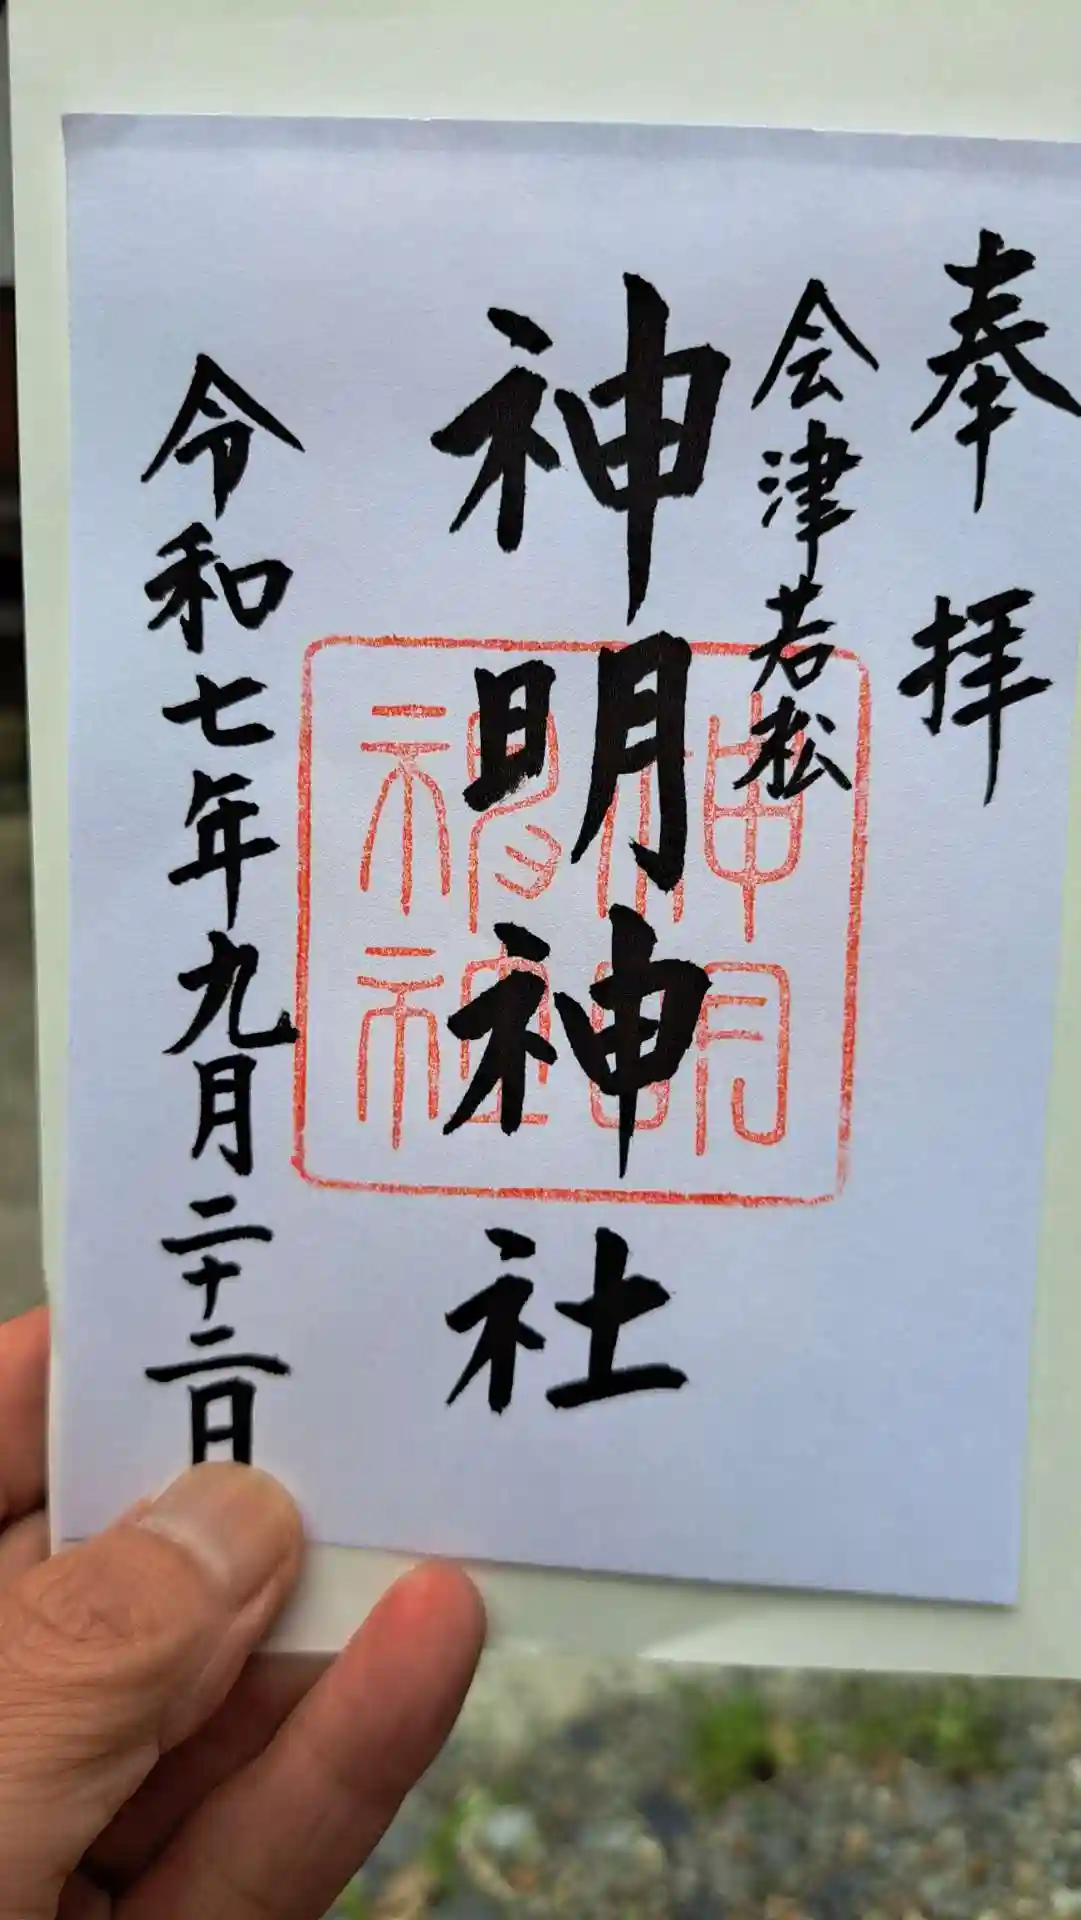 奉拝
会津若松
神明神社
神明神社
令和七年九月二十二日